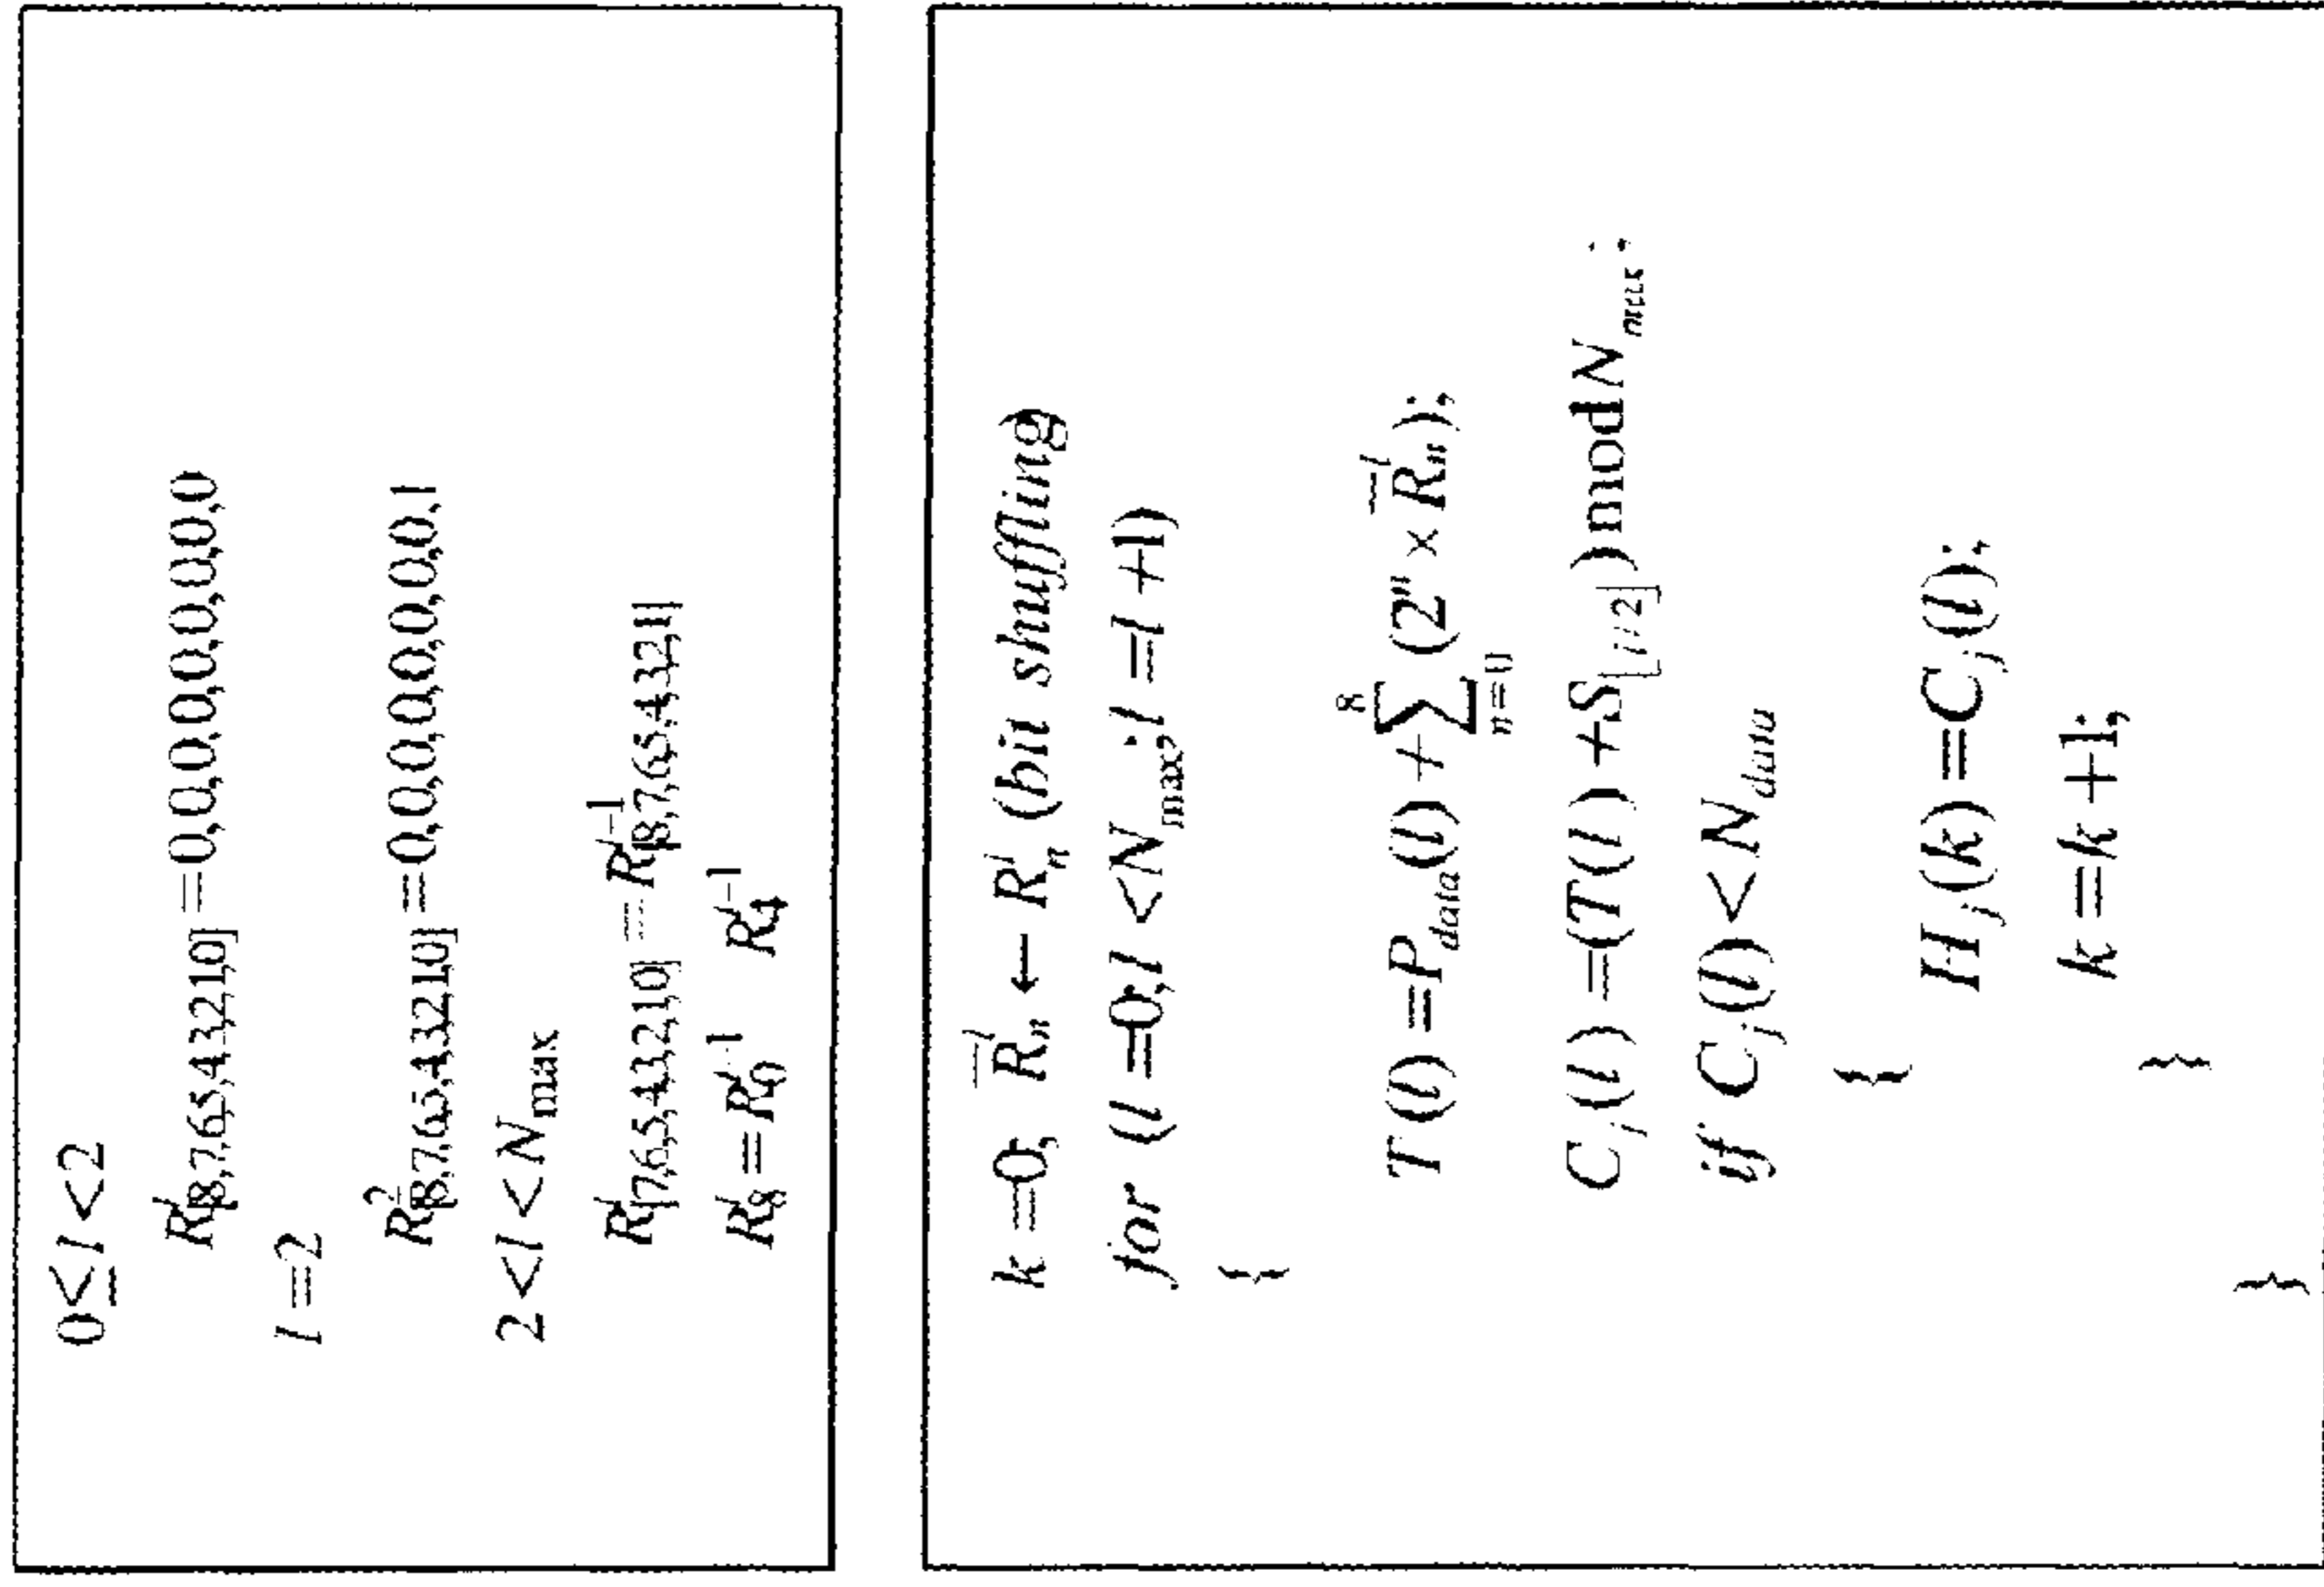 0≤l<2
R^l_[8,7,6,5,4,3,2,1,0] =0,0,0,0,0,0,0,0,0
l=2
R^2_[8,7,6,5,4,3,2,1,0] =0,0,0,0,0,0,0,0,1
2<l<N_max
R^l_[7,6,5,4,3,2,1,0] =R^l-1_[8,7,6,5,4,3,2,1]
R^l_8 =R^l-1_0 R^l-1_4
k=0, R̅^l_n ← R^l_n (bit shuffling)
for (l=0;l<N_max;l=l+1)
{
T(l)=P_data(l)+∑^8_n=0(2^n × R̅^l_n);
C_j(l)=(T(l)+S_⌊j/2⌋)modN_max;
if C_j(l)<N_data
{
H_j(k)=C_j(l);
k=k+1;
}
}